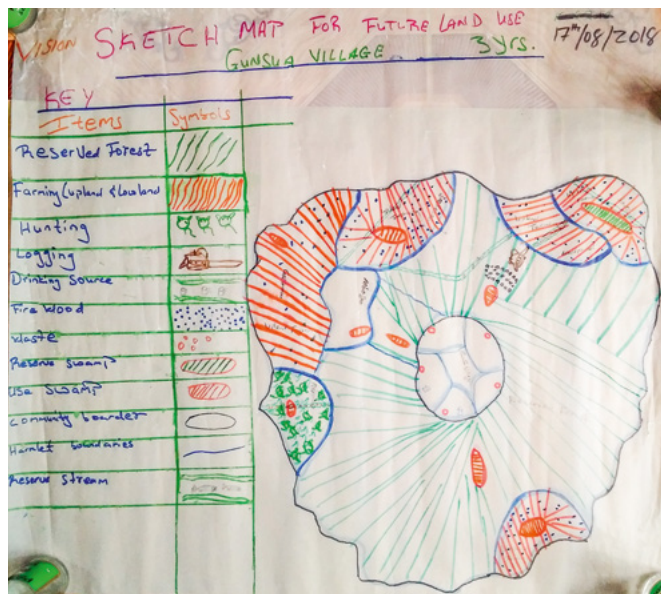 VISION SKETCH MAP FOR FUTURE LAND USE
17th/08/2018
GUNSUA VILLAGE 3 yrs.
KEY
Items Symbols
Reserved Forest
Farming (upland & lowland
Hunting
Logging
Drinking Source
Fire Wood
Waste
Reserve Swamp
Use Swamp
Community boarder
Hamlet boundaries
Reserve Stream